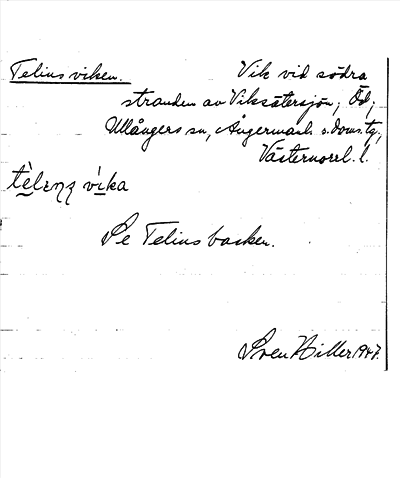 Teliusviken. Vik vid södra
stranden av Viksätersjön, Öd,
Ullångers sn, Ångermanl. s. doms. tg.,
Västernorrl. l.
vika
Se Teliusbacken.
Sven Hiller 1947.